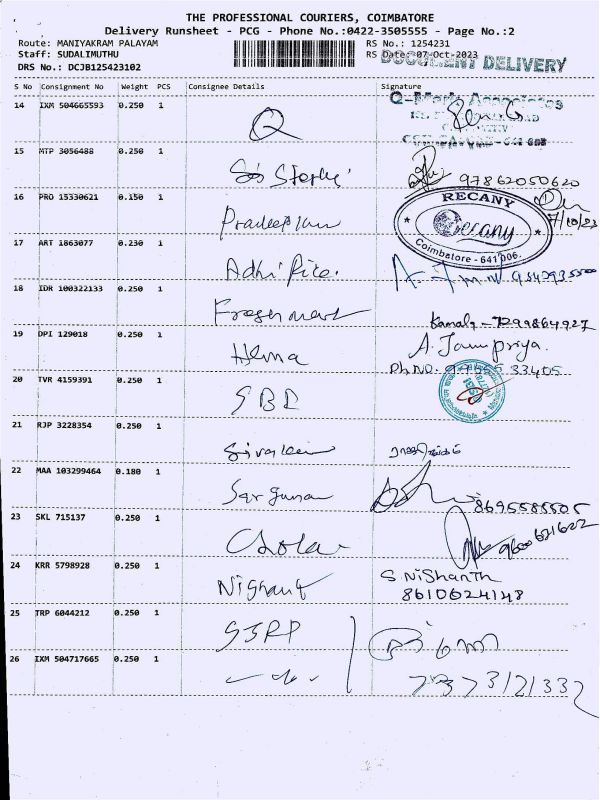 THE PROFESSIONAL COURIERS, COIMBATORE
Delivery Runsheet - PCG - Phone No.:0422-3505555 - Page No.:2
Route: MANIYAKRAM PALAYAM RS No.: 1254231
Staff: SUDALIMUTHU RS Date: 07-Oct-2023
DOCUMENT DELIVERY
DRS No.: DCJB125423102
S No Consignment No Weight PCS Consignee Details Signature
14 IXM 504665593 0.250 1 Q
15 MTP 3056488 0.250 1 97862050620
16 PRO 15330621 0.150 1 Pradeep RECANY 7/10/23
Recany
Coimbatore - 641 006.
17 ART 1863077 0.230 1 Adhi
18 IDR 100322133 0.250 1 Freshmart Kamala -
19 DPI 129018 0.250 1 Hema A. Jampriya.
Ph NO. 97555 33405
20 TVR 4159391 0.250 1 SBI
21 RJP 3228354 0.250 1
22 MAA 103299464 0.180 1 Sarguna 8695585505
23 SKL 715137 0.250 1 Chola 9600621622
24 KRR 5798928 0.250 1 Nishant S NiSHANTH
8610624148
25 TRP 6044212 0.250 1
26 IXM 504717665 0.250 1